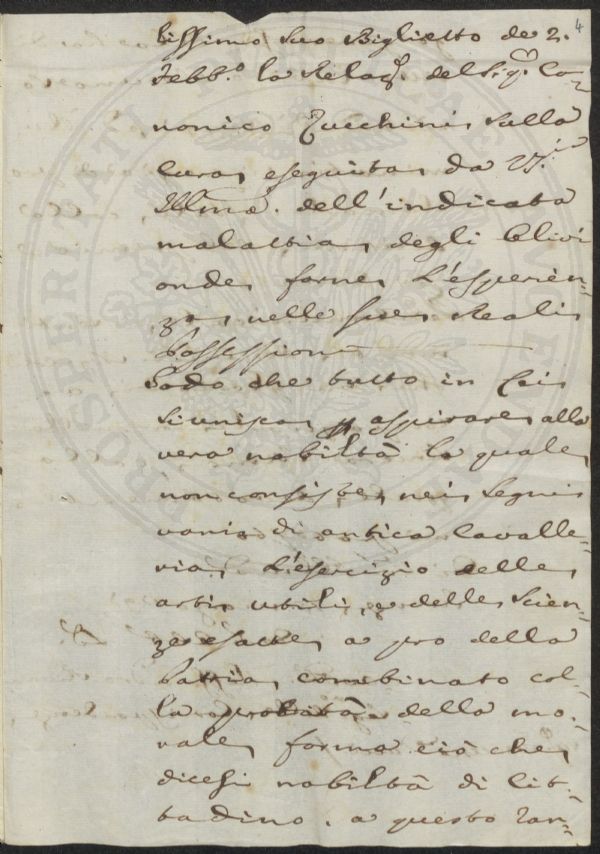 4
tissimo suo Biglietto de 2.
Febb.o la Relaz.e del Sig.r Ca=
nonico Zucchini sulla
cura eseguita da VS.
Illma. dell'indicata
malattia degli Ulivi
onde farne l'esperien=
za nelle sue Reali
Possessioni
Godo che tutto in Lei
si unisca p aspirare alla
vera nobiltà la quale
non consiste nei segni
vani di antica Cavalle=
ria. L'esercizio delle
arti utili, e delle Scien=
ze esatte a pro della
Patria, combinato col=
la probità della mo=
rale forma ciò che
dicesi nobiltà di Cit=
tadino. a questo